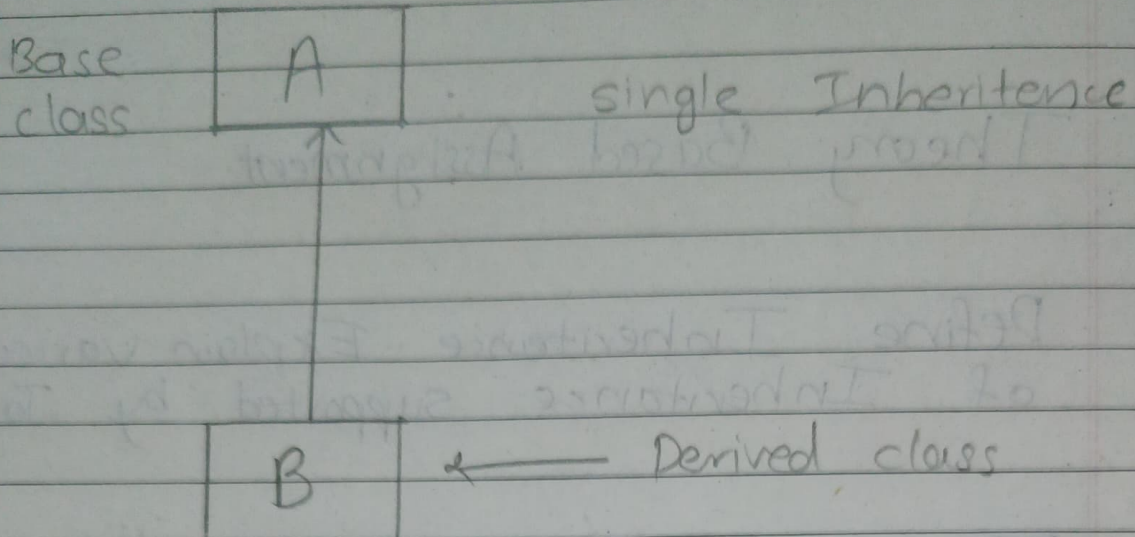 Base
A
class
single Inheritence
B
Derived class